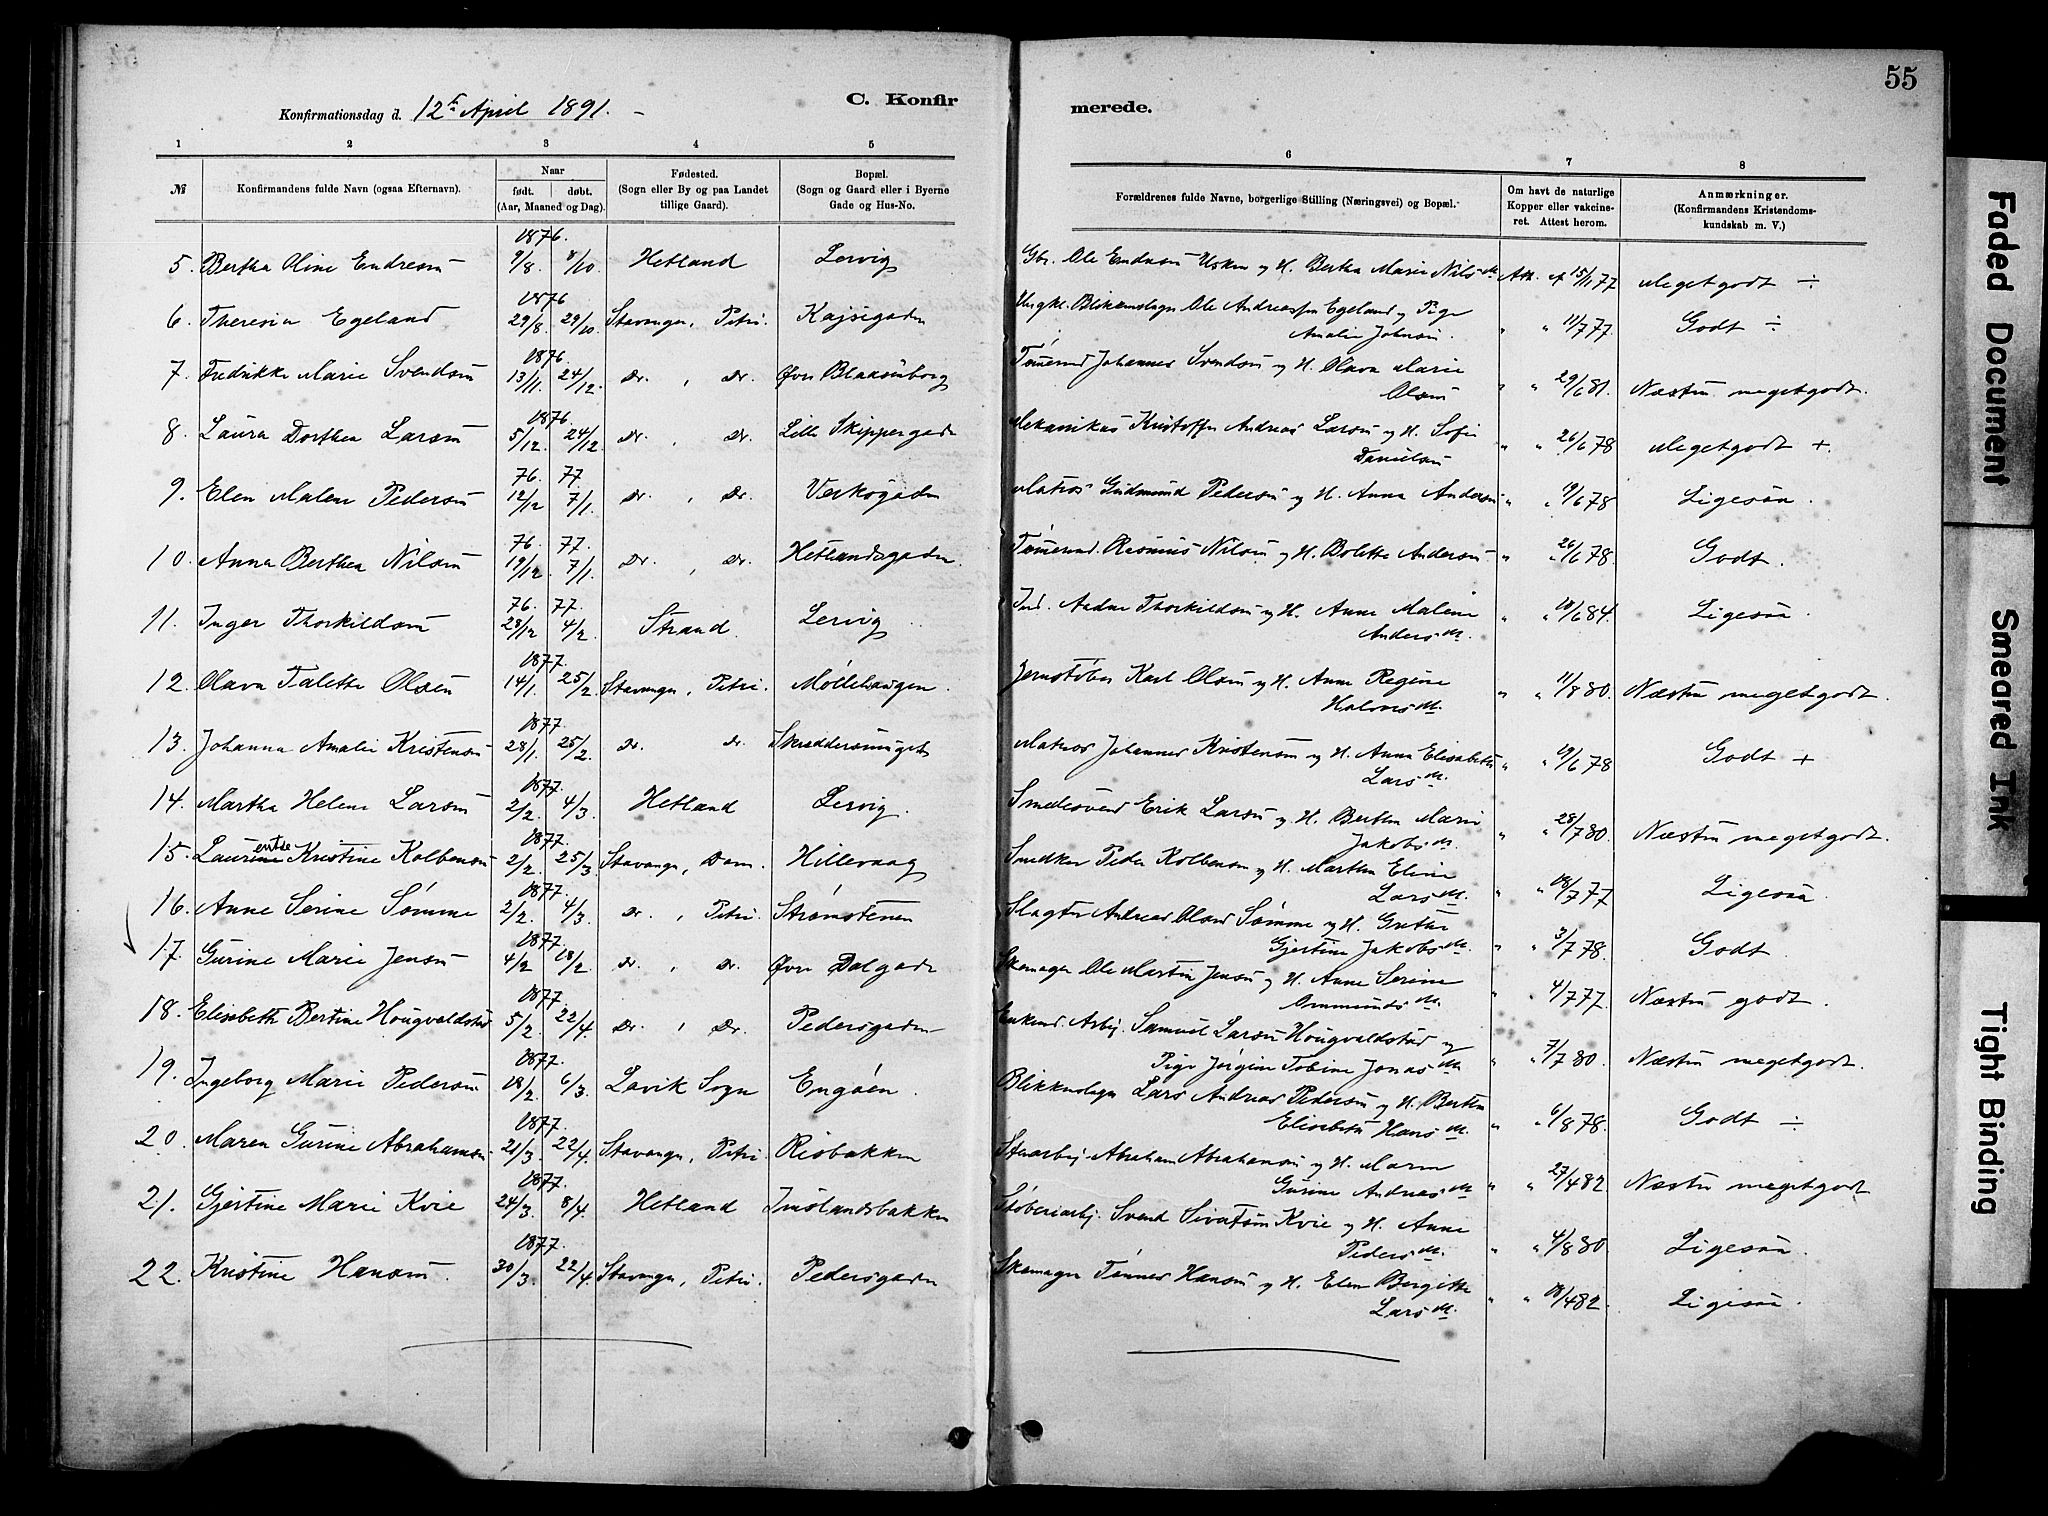 55
C. Konfir
merede.
Konfirmationsdag d. 12te April 1891. -
1 2 3 4 5 6 7 8
№ Konfirmandens fulde Navn (ogsaa Efternavn). Naar født. døbt. (Aar, Maaned og Dag). Fødested. (Sogn eller By og paa Landet tillige Gaard). Bopæl. (Sogn og Gaard eller i Byerne Gade og Hus-No. Forældrenes fulde Navne, borgerlige Stilling (Næringsvei) og Bopæl. Om havt de naturlige Kopper eller vakcineret. Attest herom. Anmærkninger. (Konfirmandens Kristendomskundskab m. V.)
1876.
5. Bertha Oline Endresen 9/8. 8/10. Hetland Lervig Gbr. Ole Endresen Usken og H. Bertha Marie Nilsd. Att. af 15/1 77 Megetgodt ÷
1876
6. Theresia Egeland 29/8. 29/10. Stavanger, Petri. Kajsegaden Ungkl. Blikkenslager Ole Andreassen Egeland og Pige
Amalie Johnsen. " " 11/7 77. Godt ÷
1876.
7. Fredrikke Marie Svendsen 13/11. 24/12. Do. , Do. Øvre Blaasenborg Tønnesvend Johannes Svendsen og H. Olava Marie
Olsen " " 29/6 81. Næsten megetgodt.
1876.
8. Laura Dorthea Larsen 5/12. 24/12. Do. , Do. Lille Skippergade Mekanikus Kristoffer Andreas Larsen og H. Sofie
Danielsen " " 26/6 78 Megetgodt +.
76. 77.
9. Elen Malene Pedersen 12/12 7/1. Do. , Do. Verksgaden Matros Gudmund Pedersen og H. Anna Andersen " " 19/6 78 Ligesaa.
76. 77.
10. Anna Berthea Nilsen 19/12. 7/1. Do. , Do. Hetlandsgaden. Tønnesvend. Rasmus Nilsen og H. Bolette Andersen " " 26/6 78. Godt.
76. 77.
11. Inger Thorkildsen 28/12 4/2. Strand. Lervig Ind. Aadne Thorkildsen og H. Anne Malene
Andersd. " " 18/6 84. Ligesaa
1877.
12. Olava Talette Olsen 14/1. 25/2. Stavanger, Petri. Møllehaugen. Jernstøber Karl Olsen og H. Anne Regine
Halvorsd. " " 11/8 80. Næsten megetgodt.
1877.
13. Johanna Amalie Kristensen 28/1. 25/2. Do. Do. Skreddersmuget Matros Johannes Kristensen og H. Anna Elisabeth
Larsd. " " 19/6 78 Godt +
1877.
14. Martha Helene Larsen 2/2. 4/3. Hetland Lervig. Smedesvend Erik Larsen og H. Berthe Marie
Jakobsd. " " 28/7 80. Næsten megetgodt.
1877.
15. Laurine Kristine Kolbensen 2/2. 25/3 Stavanger, Dom. Hillevaag Smedker Peder Kolbensen og H. Martha Eline
Larsd. " " 18/7 77 Ligesaa.
1877.
16. Anne Serine Sømme 2/2. 4/3. Do. , Petri. Strømstenen Slagter Andreas Olsen Sømme og H. Grethe
Gjertine Jakobsd. " " 3/7 78. Godt
1877.
17. Gurine Marie Jensen 4/2 18/2 Do. , Do. Øvre Dalgade Skomager Ole Martin Jensen og H. Anne Serine
Ommundsd. " " 4/7 77. Næsten godt.
1877.
18. Elisabeth Bertine Hougvaldstad 5/2. 22/4. Do. , Do. Pedersgaden Enkemd. Arbj. Samuel Larsen Hougvaldstad og
Pige Jørgine Tobine Jonasd. " " 7/7 80. Næsten megetgodt.
1877.
19. Ingeborg Marie Pedersen 18/2. 6/3. Lavik Sogn Engøen. Blikkenslager Lars Andreas Pedersen og H. Berthe
Elisabeth Hansd. " " 6/8 78. Godt ÷
1877.
20. Maren Gurine Abrahamsen 21/3. 22/4. Stavanger, Petri. Risbakken Stenarbj. Abraham Abrahamsen og H. Maren
Gurine Andreasd. " " 27/4 82 Næsten megetgodt
1877.
21. Gjertine Marie Kvie 24/3. 8/4. Hetland Jerslandsbakken Støberiarbj. Svend Sivertsen Kvie og H. Anne
Pedersd. " " 4/8 80 Ligesaa.
1877.
22. Kristine Hansen. 30/3. 22/4 Stavanger, Petri. Pedersgaden Skomager Tønnes Hansen og H. Elen Bergitte
Larsd. " " 18/4 82. Ligesaa.
Faded Document
Smeared Ink
Tight Binding